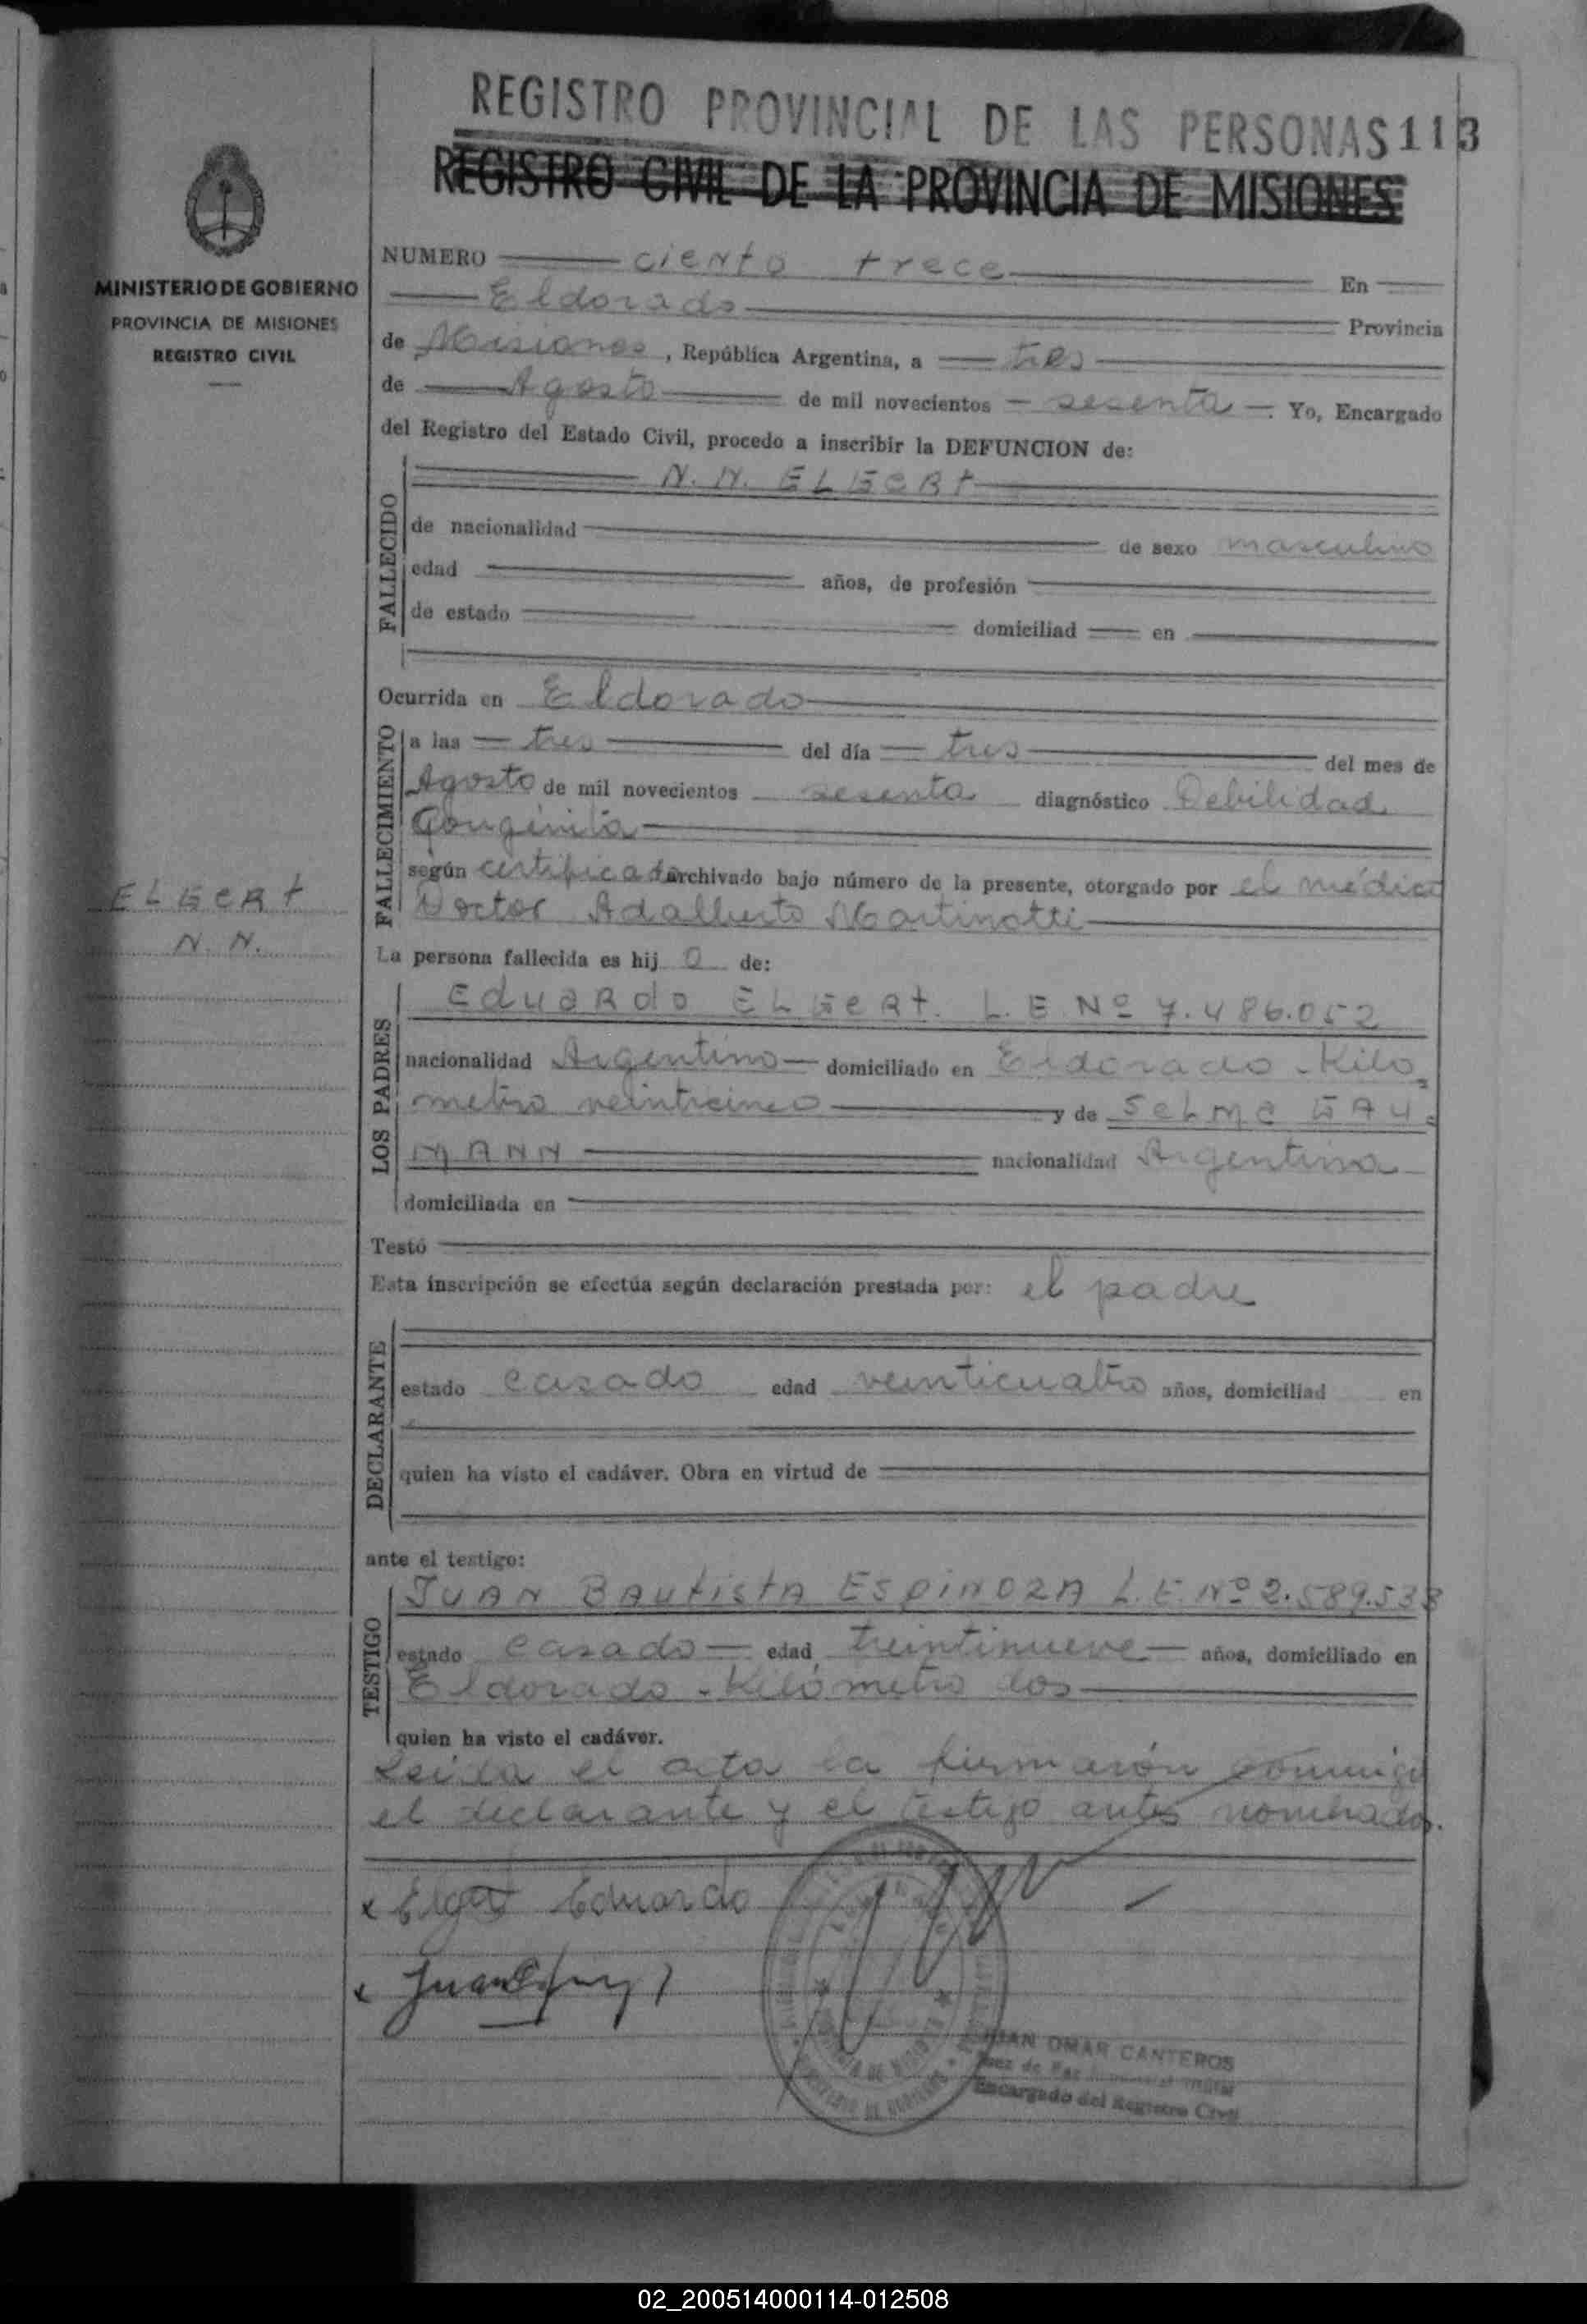 REGISTRO PROVINCIAL DE LAS PERSONAS 113
REGISTRO CIVIL DE LA PROVINCIA DE MISIONES
MINISTERIO DE GOBIERNO
PROVINCIA DE MISIONES
REGISTRO CIVIL
NUMERO ciento trece En
Eldorado Provincia
de Misiones, República Argentina, a tres
de Agosto de mil novecientos sesenta. Yo, Encargado
del Registro del Estado Civil, procedo a inscribir la DEFUNCION de:
FALLECIDO
N. N. ELGERt
de nacionalidad de sexo masculino
edad años, de profesión
de estado domiciliad en
Ocurrida en Eldorado
FALLECIMIENTO
a las tres del día tres del mes de
Agosto de mil novecientos sesenta diagnóstico Debilidad
Congénita
según certificado archivado bajo número de la presente, otorgado por el médico
Doctor Adalberto Martinotti
ELGERt
N. N.
La persona fallecida es hij o de:
LOS PADRES
Eduardo ELGERt. L.E. Nº 7.486.052
nacionalidad Argentino domiciliado en Eldorado - Kiló
metro veinticinco y de SELMA GAU
MANN nacionalidad Argentina
domiciliada en
Testó
Esta inscripción se efectúa según declaración prestada por: el padre
DECLARANTE
estado casado edad veinticuatro años, domiciliad en
quien ha visto el cadáver. Obra en virtud de
ante el testigo:
TESTIGO
JUAN BAUtistA ESpiNOZA L.E. Nº 2.589.533
estado casado edad treintinueve años, domiciliado en
Eldorado - Kilómetro dos
quien ha visto el cadáver.
Leída el acta la firmarón conmigo
el declarante y el testigo antes nombrados.
x Elgert Eduardo
x Juan
JUAN OMAR CANTEROS
Juez de Paz
Encargado del Registro Civil
02_200514000114-012508